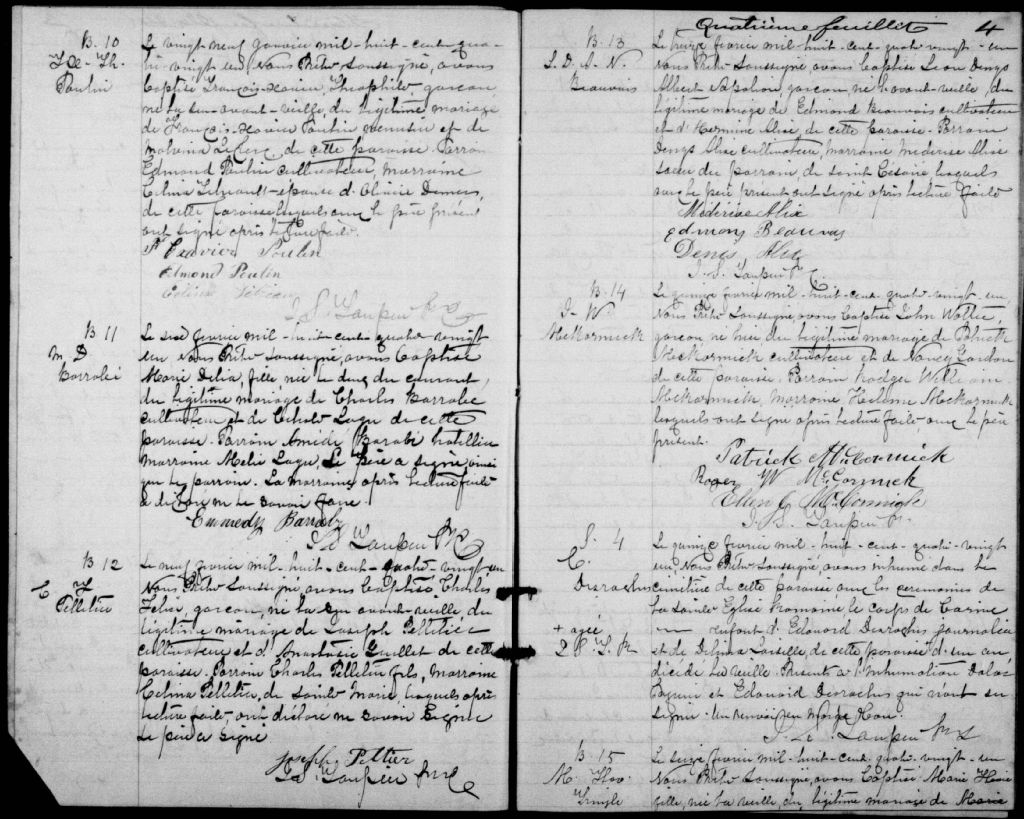 B. 10
Poulin
Le vingt-neuf janvier mil-huit-cent-qua-
tre-vingt-un Nous Prêtre Soussigné, avons
baptisé François-Xavier Théophile, garçon
né la suravant-veille, du légitime mariage
de François-Xavier Poulin menuisier et de
Malvina Leclerc de cette paroisse. Parrain
Edmond Poulin cultivateur, Marraine
Celina épouse d'Olivier Demers,
de cette paroisse lesquels avec le père présent
ont signé après lecture faite.
F Xavier Poulin
Edmond Poulin
Celina
B 11
M. D
Barrabé
Le six février mil-huit-cent-quatre-vingt
un Nous Prêtre Soussigné, avons baptisé
Marie Délia, fille née le deux du courant,
du légitime mariage de Charles Barrabé
cultivateur et de Lague de cette
paroisse. Parrain Amédé Barabé
marraine Melie Lague, Le père a signé ainsi
que le parrain. La marraine après lecture faite
a déclaré ne le savoir faire.
Emmedy Barraby
B 12
C. F
Pelletier
Le neuf février mil-huit-cent-quatre-vingt un
Nous Prêtre Soussigné avons baptisé Charles
Felix, garçon, né la avant-veille du
légitime mariage de Joseph Pelletier
cultivateur et d'Anastasie Guillet de cette
paroisse. Parrain Charles Pelletier fils, marraine
Celina Pelletier, de Sainte Marie lesquels après
lecture faite, ont déclaré ne savoir signer
Le père a signé
Joseph Peltier
Quatrième feuillet 4
B. 13
L. D. A. N.
Beauvais
Le treize février mil-huit-cent-quatre-vingt-un
Nous Prêtre Soussigné, avons baptisé Leon Denys
Albert Napoléon, garçon, né l'avant-veille du
légitime mariage de Edmond Beauvais cultivateur
et d'Hermine Alix, de cette paroisse. Parrain
Denys Alix cultivateur, Marraine Mederise Alix
soeur du parrain, de Saint Césaire lesquels
avec le père présent ont signé après lecture faite
Médérise Alix
Edmond Beauvais
Denis Alix
B. 14
J. W.
McKormick
Le quinze février mil-huit-cent-quatre-vingt-un
Nous Prêtre Soussigné, avons baptisé John
garçon, né du légitime mariage de Patrick
McKormick cultivateur et de Nancy Gordon
de cette paroisse. Parrain Rodger William
McKormick, marraine Helene McKormick
lesquels ont signé après lecture faite avec le père
présent.
Patrick McCormick
Roger W McCormick
Ellen McCormick
S. 4
C.
Desroches
+ agée
Le quinze février mil-huit-cent-quatre-vingt
un, Nous Prêtre Soussigné, avons inhumé dans le
cimetière de cette paroisse avec les cérémonies de
la Sainte Eglise Romaine le corps de
enfant d'Edouard Desroches journalier
et de Delina Loiselle, de cette paroisse d'un an
décédé la veille. Présents à l'inhumation
et Edouard Desroches qui n'ont su
signer. Un renvoi en marge bon.
B. 15
M.
Le seize février mil-huit-cent-quatre-vingt-un
Nous Prêtre Soussigné, avons baptisé Marie
fille, née la veille, du légitime mariage de